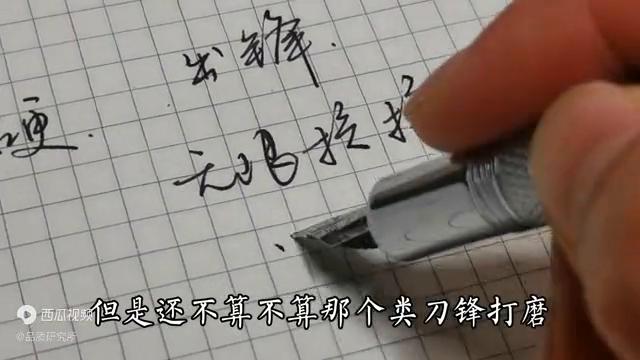 出锋.
硬.
西瓜视频
@品质研究所
但是还不算不算那个类刀锋打磨